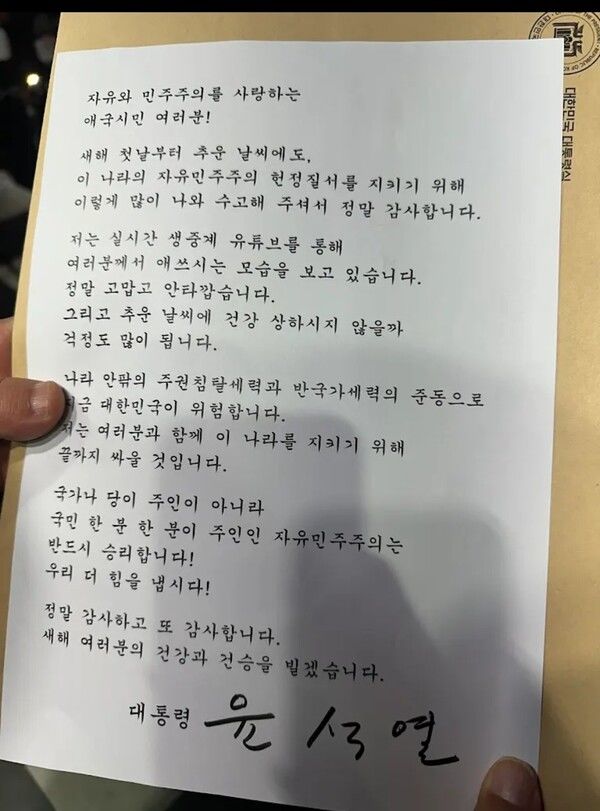 대한민국 대통령실
자유와 민주주의를 사랑하는
애국시민 여러분!
새해 첫날부터 추운 날씨에도,
이 나라의 자유민주주의 헌정질서를 지키기 위해
이렇게 많이 나와 수고해 주셔서 정말 감사합니다.
저는 실시간 생중계 유튜브를 통해
여러분께서 애쓰시는 모습을 보고 있습니다.
정말 고맙고 안타깝습니다.
그리고 추운 날씨에 건강 상하시지 않을까
걱정도 많이 됩니다.
나라 안팎의 주권침탈세력과 반국가세력의 준동으로
지금 대한민국이 위험합니다.
저는 여러분과 함께 이 나라를 지키기 위해
끝까지 싸울 것입니다.
국가나 당이 주인이 아니라
국민 한 분 한 분이 주인인 자유민주주의는
반드시 승리합니다!
우리 더 힘을 냅시다!
정말 감사하고 또 감사합니다.
새해 여러분의 건강과 건승을 빌겠습니다.
대통령 윤석열